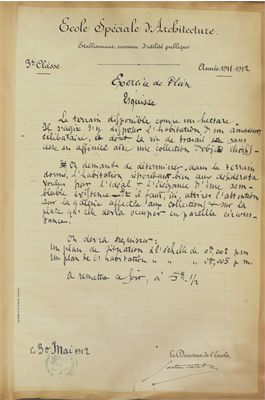 Ecole Spéciale d'Architecture.
Etablissement reconnu d'utilité publique
3e Classe Année 1911-1912
Exercice de Plein
Esquisse
Le terrain disponible comme un hectare.
Il s'agit d'y disposer l'habitation d'un amateur,
célibataire, et dont la vie de travail se passe
en affinité avec une collection d'objets choisis.
On demande de déterminer, dans le terrain
donné, l'habitation répondant bien aux desiderata
voulus par l'idéal et l'élégance d'une
semblable existence et il faut, ici, attirer l'attention
sur la galerie affectée aux collections et sur la
place qu'elle devra occuper en pareille
circonstance.
On devra esquisser:
un plan de situation à l'échelle de 0m,002 p.m.
un plan de l'habitation " " " 0m,005 p.m.
A remettre ce soir, à 5h 1/2
le 30 Mai 1912
Le Directeur de l'Ecole,